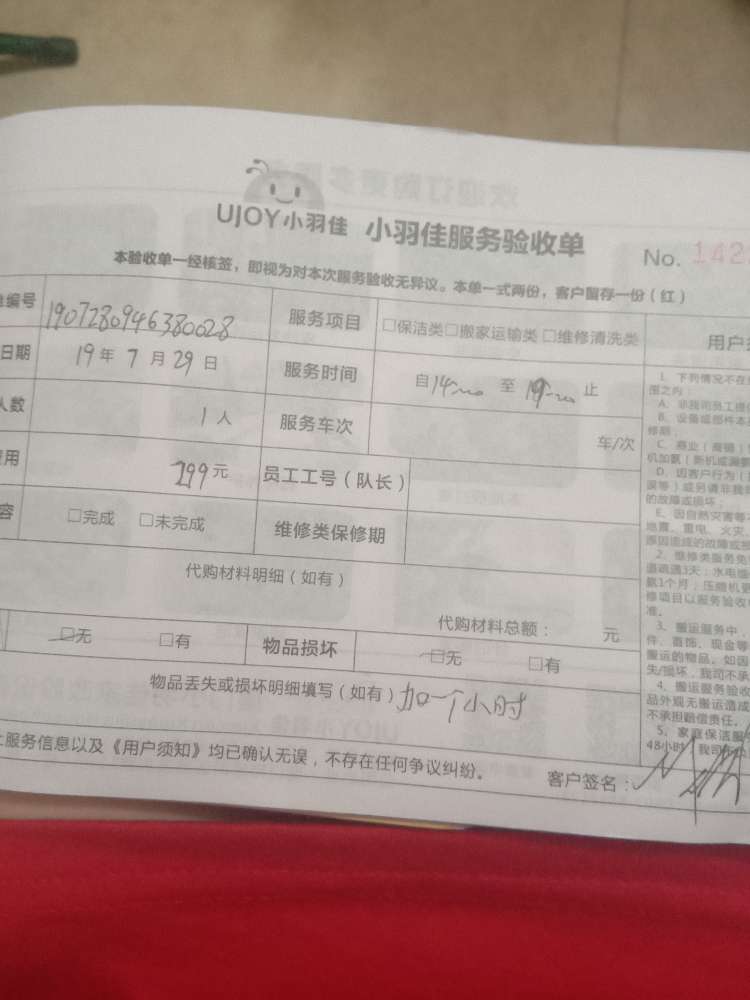 UJOY小羽佳 小羽佳服务验收单
No. 142
本验收单一经核签，即视为对本次服务验收无异议。本单一式两份，客户留存一份（红）
编号 1907280946380028 服务项目 □保洁类□搬家运输类 □维修清洗类
日期 19年7月29日 服务时间 自14 至 止
人数 1人 服务车次 车/次
费用 299元 员工工号（队长）
容 □完成 □未完成 维修类保修期
代购材料明细（如有）
代购材料总额： 元
□无 □有 物品损坏 □无 □有
物品丢失或损坏明细填写（如有）加一个小时
服务信息以及《用户须知》均已确认无误，不存在任何争议纠纷。
客户签名：
用户
1、下列情况不在
围之内：
A、非我司员工提
B、设备或部件本
修期
C、商业（商铺）
机加氨（新机或漏
D、因客户行为（
误等）或另请非我
的故障或损坏；
E、因自然灾害等不
地震、雷电、火灾
原因造成的故障或损
2、维修类服务免
道疏通3天；水电维
氨1个月；压缩机更
修项目以服务验收
准。
3、搬运服务中，
件、首饰、现金等
搬运的物品，如因
失/损坏，我司不承
4、搬运服务验收
品外观无搬运造成
不承担赔偿责任。
5、家庭保洁服
48小时，我司